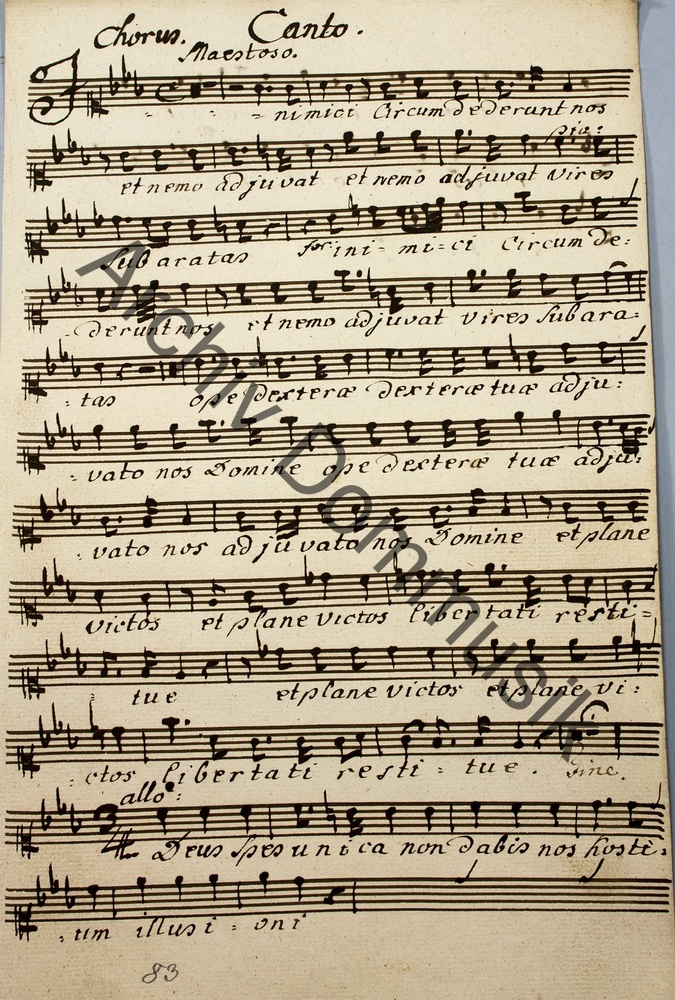 Chorus. Canto.
Maestoso.
I - - - nimici Circumdederunt nos
pia:
et nemo adjuvat et nemo adjuvat vires
Sub aratas for: ini- mi-ci Circum de:
- derunt nos et nemo adjuvat vires Subara-
: tas ope dexteræ dexteræ tuæ adju:
- vato nos Domine ope dexteræ tuæ adju:
- vato nos adjuvato nos Domine et plane
victos et plane victos libertati resti=
: tue et plane victos et plane vi:
- ctos libertati resti- tue. Fine.
allo:
3/4 Deus Spes unica non dabis nos hosti:
: um illusi- oni
83
Archiv Dommusik